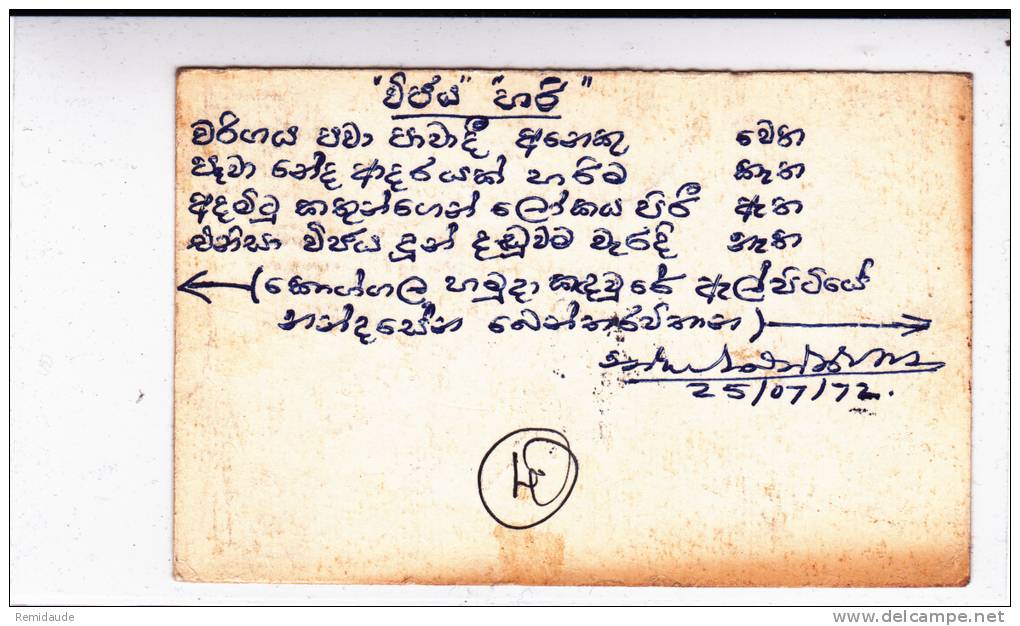 "විජය" "හරි"
වරිගය පවා පාවාදී අනෙකු වෙත
පෑවා නේද ආදරයක් හරිම නැත
අදමිටු කතුන්ගෙන් ලෝකය පිරී ඇත
එනිසා විජය දුන් දඬුවම වැරදි නැත
(කොග්ගල හමුදා කඳවුරේ ඇල්පිටියේ
නන්දසේන බෙන්තරවිතාන)
25/07/72.
Remidaude
delcampe.net